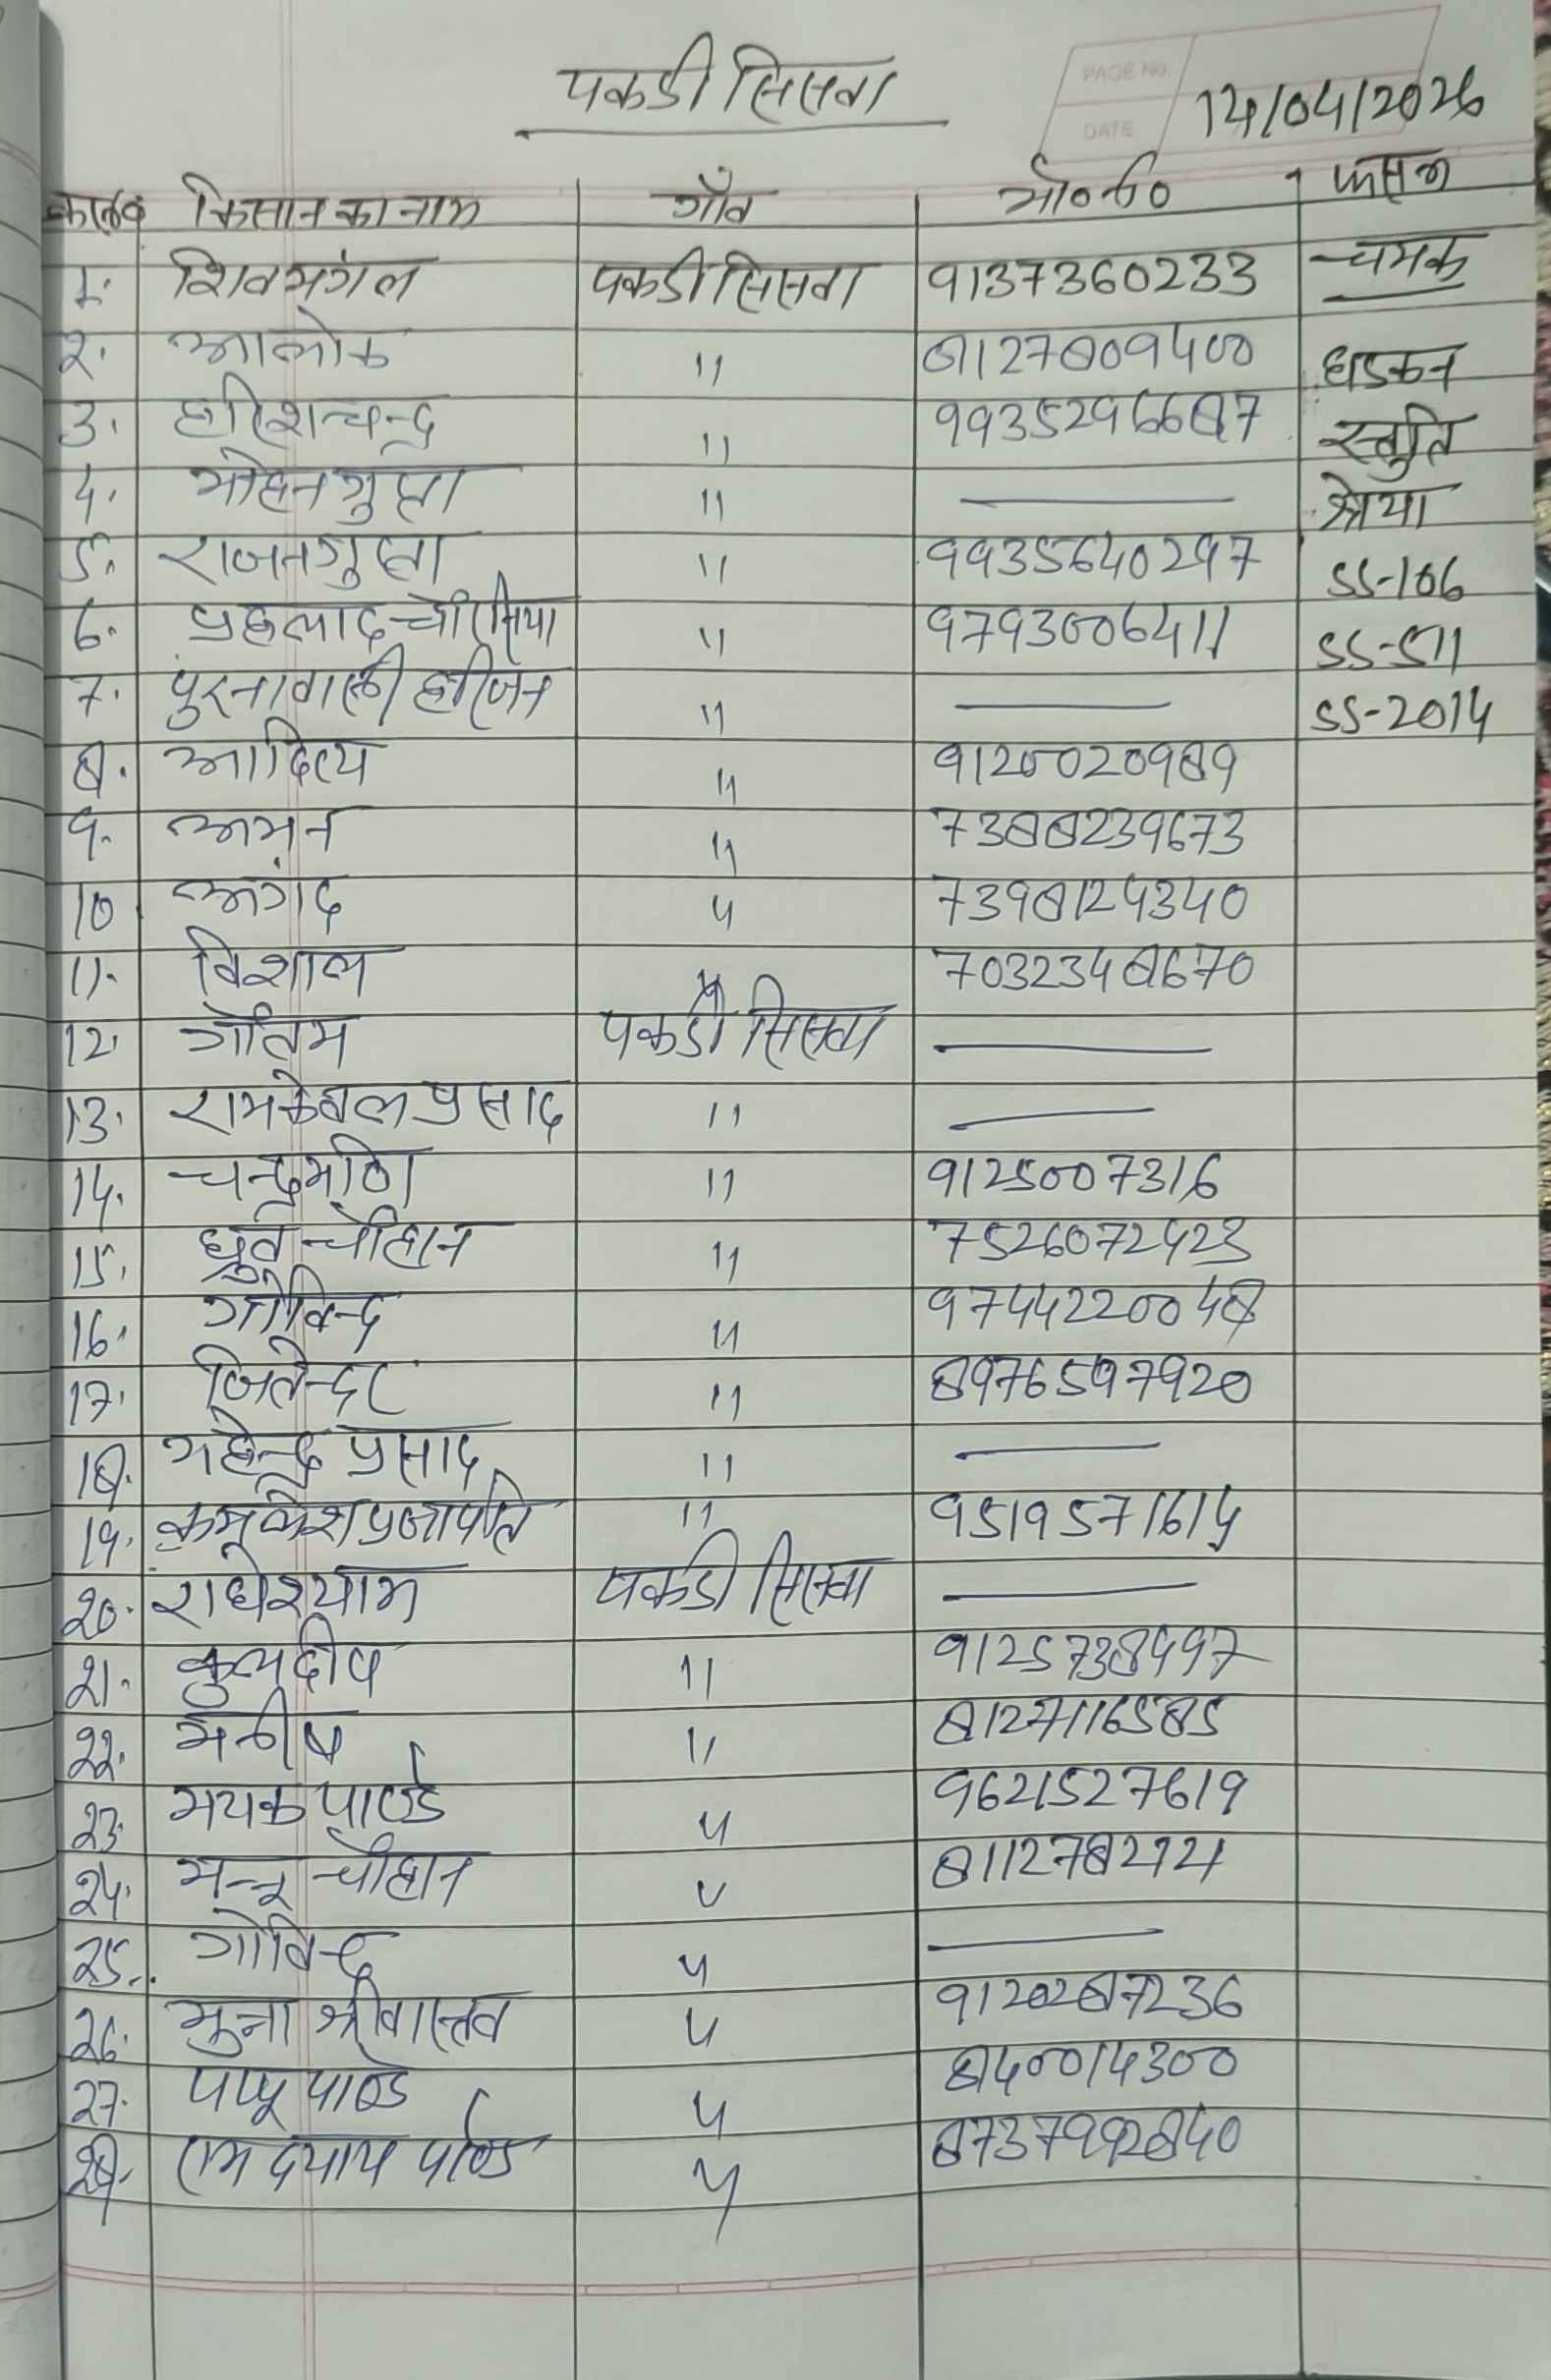 पकडी सिसवा
PAGE NO.
DATE
14/04/2026
किसान का नाम गाँव मो०नं० फसल
1. शिवमंगल पकडी सिसवा 9137360233 चमक
२. आलोक " 8127809400 धडकन
3. हरिशचन्द्र " 9935296687 स्तुति
4. मोहन गुप्ता " — श्रेया
5. राजन गुप्ता " 9935640297 SS-106
6. प्रहलाद चौरसिया " 9793006411 SS-511
7. पुरनावासी हरिजन " — SS-2014
8. आदित्य " 9120020989
9. अमन " 7388239673
10 अगंद " 7398124340
11. विशाल " 7032348670
12. गौतम पकडी सिसवा —
13. रामकेवल प्रसाद " —
14. चन्द्रमणि " 9125007316
15. ध्रुव चौहान " 7526072423
16. गोविन्द " 9744220048
17. जितेन्दर " 8976597920
18. महेन्द्र प्रसाद " —
19. कमलेश प्रजापति " 9519571614
२0. राधेश्याम पकडी सिसवा —
२1. कुलदीप " 9125738497
२२. मनीष " 8127116585
२3. मयंक पाण्डे " 9621527619
२4. मन्नू चौहान " 8112782721
२5. गोविन्द " —
२6. मुन्ना श्रीवास्तव " 9120287236
२7. पप्पू पाण्डे " 8140014300
२8. राम दयाल पाण्डे " 8737992840